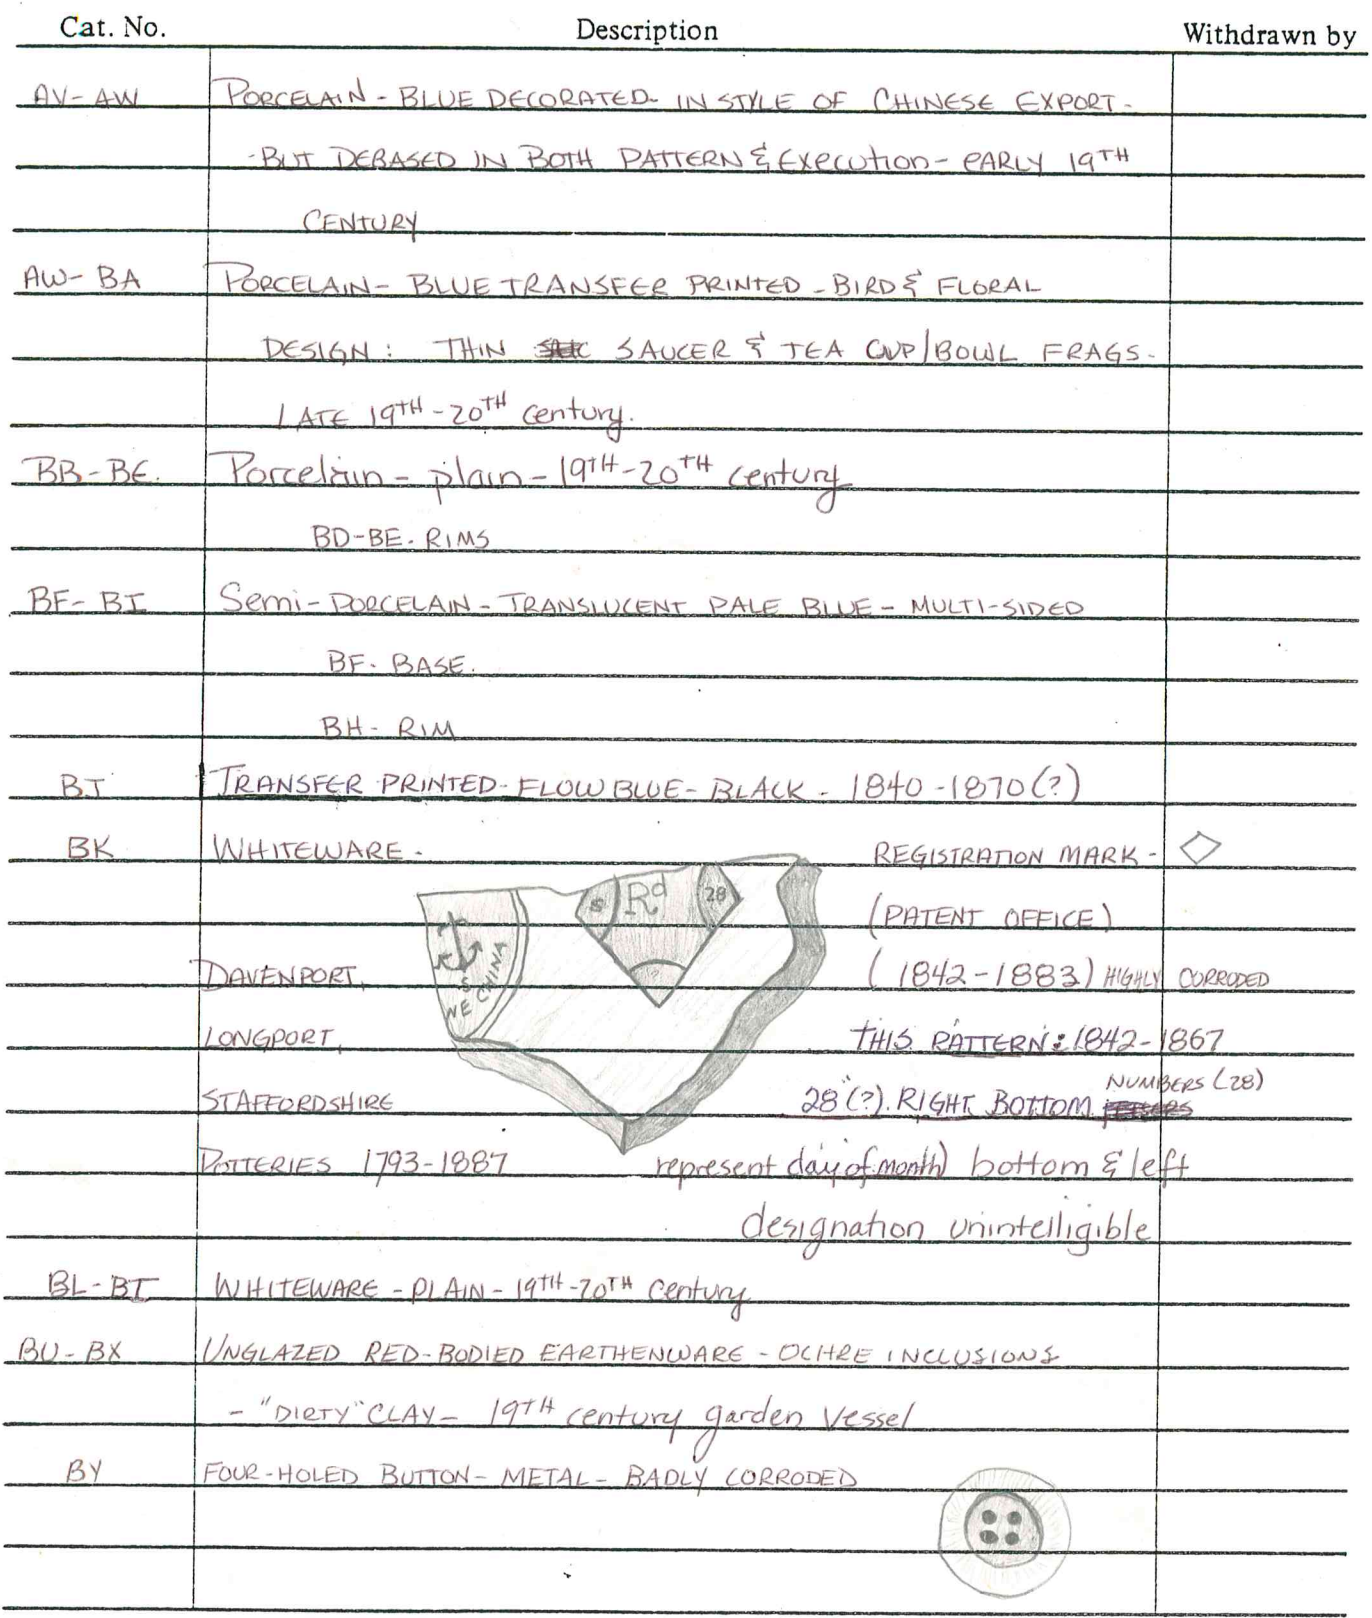 Cat. No. Description Withdrawn by
AV-AW PORCELAIN - BLUE DECORATED - IN STYLE OF CHINESE EXPORT -
- BUT DEBASED IN BOTH PATTERN & Execution - EARLY 19TH
CENTURY
AW-BA PORCELAIN - BLUE TRANSFER PRINTED - BIRD & FLORAL
DESIGN: THIN SAUCER & TEA CUP/BOWL FRAGS.
LATE 19TH-20TH century.
BB-BE. Porcelain - plain - 19TH-20TH century
BD-BE. RIMS
BF-BI Semi-PORCELAIN - TRANSLUCENT PALE BLUE - MULTI-SIDED
BF- BASE.
BH- RIM
BJ TRANSFER PRINTED - FLOW BLUE - BLACK - 1840-1870(?)
BK WHITEWARE - REGISTRATION MARK -
S Rd 28
(PATENT OFFICE)
DAVENPORT, (1842-1883) HIGHLY CORRODED
S
NE CHINA
?
LONGPORT, THIS PATTERN: 1842-1867
STAFFORDSHIRE 28(?). RIGHT BOTTOM NUMBERS (28)
POTTERIES 1793-1887 represent day of month) bottom & left
designation unintelligible
BL-BT WHITEWARE - PLAIN - 19TH-20TH Century
BU-BX UNGLAZED RED-BODIED EARTHENWARE - OCHRE INCLUSIONS
- "DIRTY" CLAY - 19TH century garden vessel
BY FOUR-HOLED BUTTON - METAL - BADLY CORRODED